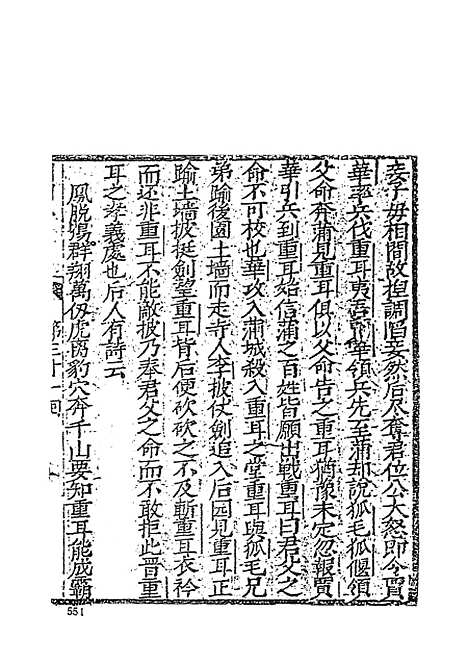 妾子毋相間故捏調唱妾然后分奪君位公大怒即令賈
華率兵伐重耳夷吾賈華領兵先至蒲却說狐毛狐偃領
父命奔蒲見重耳俱以父命告之重耳猶豫未定忽報賈
華引兵到重耳始信蒲之百姓皆願出戰重耳曰君父之
命不可校也華攻入蒲城殺入重耳之堂重耳與狐毛兄
弟踰後園土墻而走寺人李披仗劍追入后园見重耳正
踰土墻披挺劍望重耳背后便砍砍之不及斬重耳衣衿
而还非重耳不能敵披乃奉君父之命而不敢拒此晉重
耳之孝義處也后人有詩云
鳳脫鴻群翔萬仞虎离豹穴奔千山要知重耳能成霸
第三十一回
551